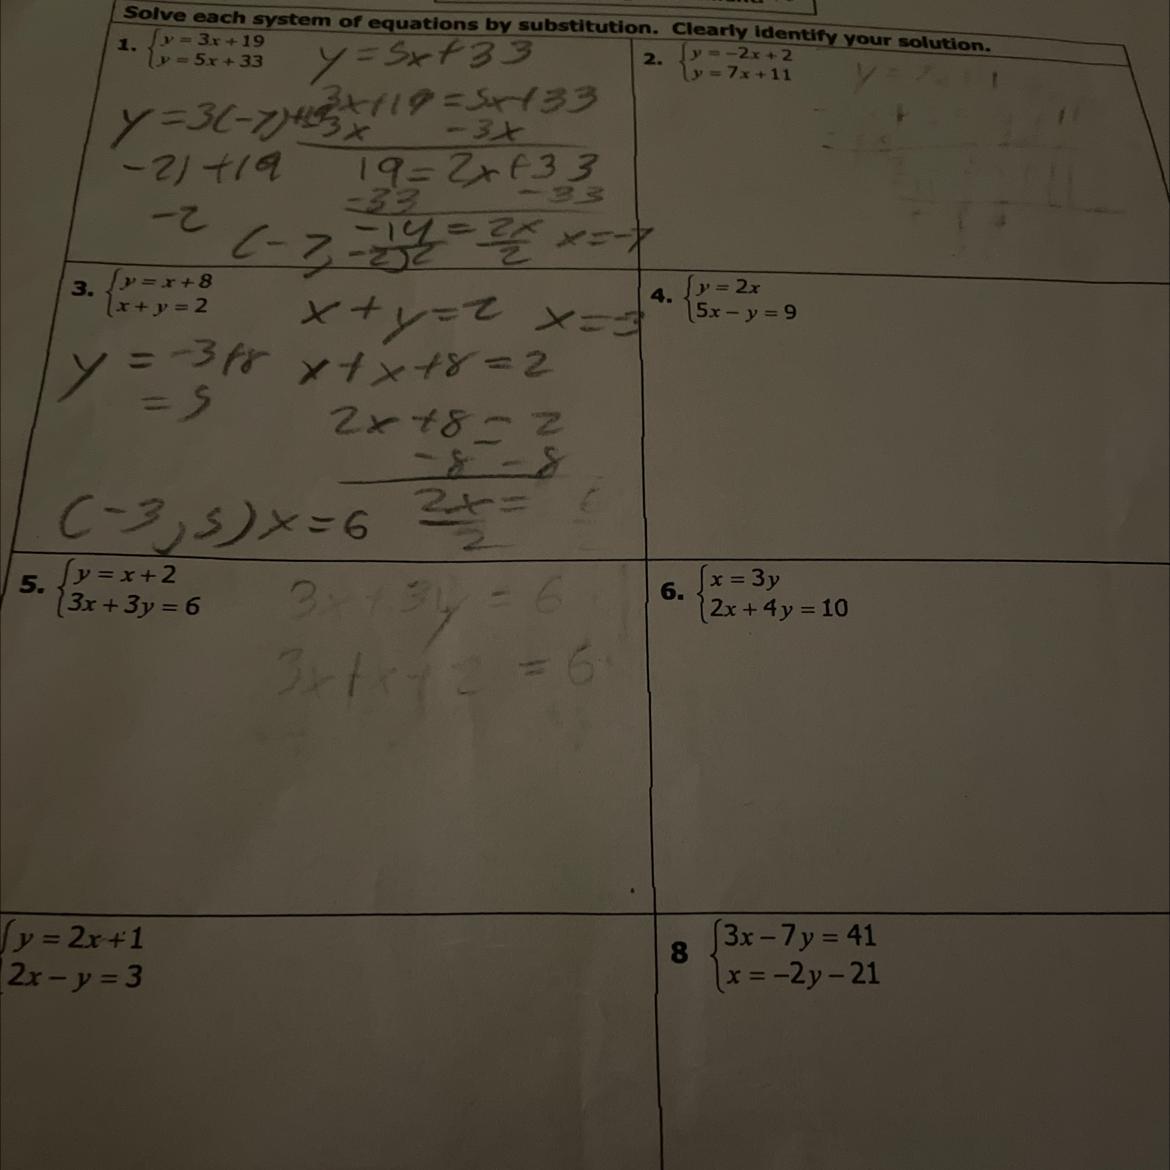 Solve each system of equations by substitution. Clearly identify your solution.
1. y = 3x + 19
y = 5x + 33
y = 5x + 33
3x + 19 = 5x + 33
-3x -3x
19 = 2x + 33
-33 -33
-14 = 2x
2 2
x = -7
y = 3(-7) + 19
-21 + 19
-2
(-7, -2)
2. y = -2x + 2
y = 7x + 11
3. y = x + 8
x + y = 2
x + y = 2 x = -3
x + x + 8 = 2
2x + 8 = 2
-8 -8
2x =
2
y = -3 + 8
= 5
(-3, 5) x = 6
4. y = 2x
5x – y = 9
5. y = x + 2
3x + 3y = 6
3x + 3y = 6
3x + x + 2 = 6
6. x = 3y
2x + 4y = 10
y = 2x + 1
2x – y = 3
8 3x – 7y = 41
x = –2y – 21